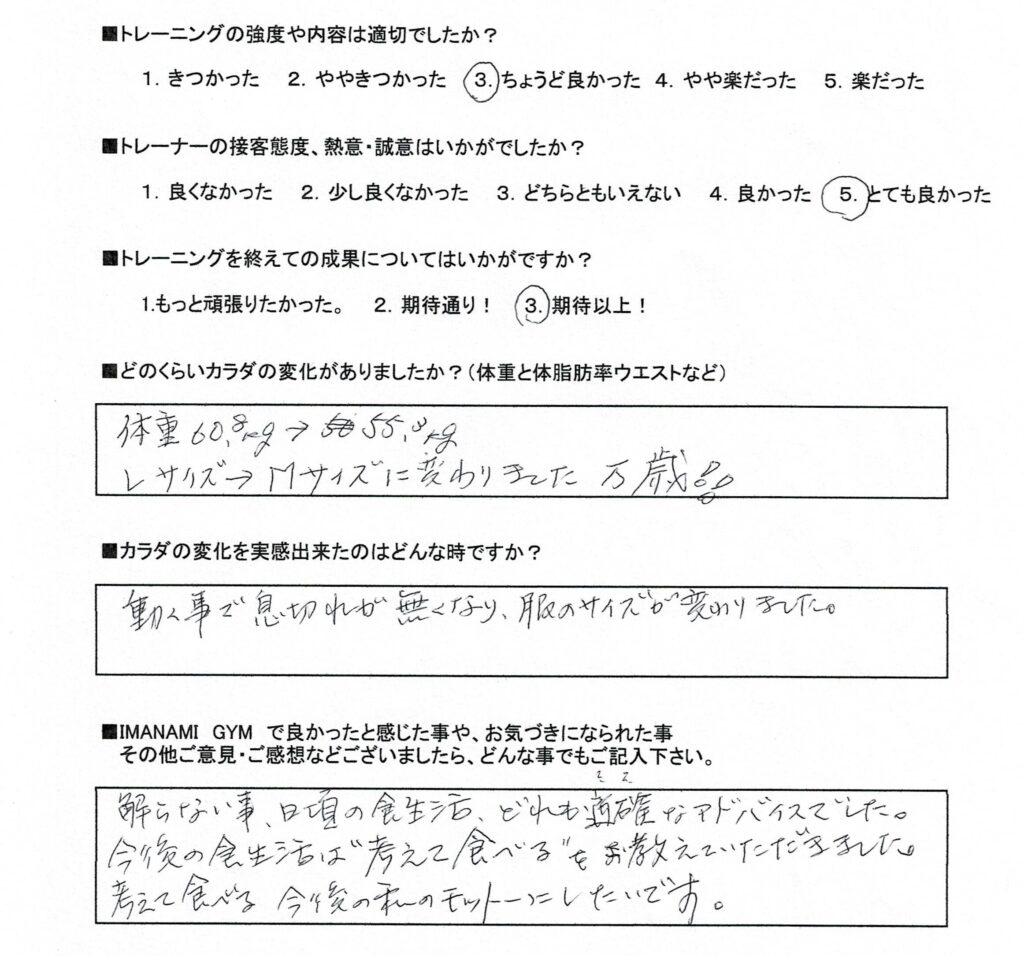 ■トレーニングの強度や内容は適切でしたか？
1. きつかった 2. ややきつかった 3. ちょうど良かった 4. やや楽だった 5. 楽だった
■トレーナーの接客態度、熱意・誠意はいかがでしたか？
1. 良くなかった 2. 少し良くなかった 3. どちらともいえない 4. 良かった 5. とても良かった
■トレーニングを終えての成果についてはいかがですか？
1.もっと頑張りたかった。 2. 期待通り！ 3. 期待以上！
■どのくらいカラダの変化がありましたか？（体重と体脂肪率ウエストなど）
体重 60.8kg → 55.8kg
Lサイズ→Mサイズに変わりました 万歳!!
■カラダの変化を実感出来たのはどんな時ですか？
動く事で息切れが無くなり、服のサイズが変わりました。
■IMANAMI GYM で良かったと感じた事や、お気づきになられた事
その他ご意見・ご感想などございましたら、どんな事でもご記入下さい。
解らない事、日頃の食生活、どれも適確なアドバイスでした。
今後の食生活は"考えて食べる"をお教えていただきました。
考えて食べる 今後の私のモットーにしたいです。